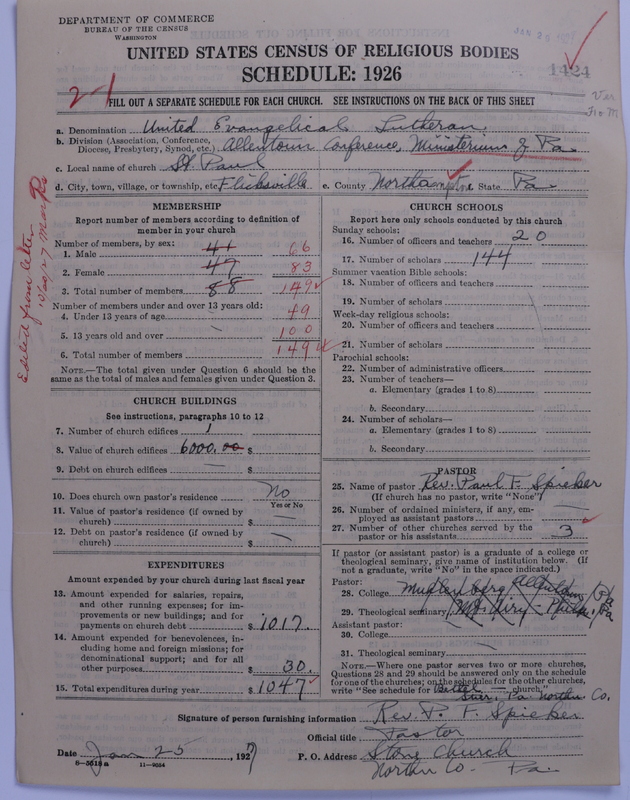 DEPARTMENT OF COMMERCE
BUREAU OF THE CENSUS
WASHINGTON
UNITED STATES CENSUS OF RELIGIOUS BODIES
SCHEDULE: 1926
1424
2-1
FILL OUT A SEPARATE SCHEDULE FOR EACH CHURCH. SEE INSTRUCTIONS ON THE BACK OF THIS SHEET
a. Denomination United Evangelical Lutheran.
b. Division (Association, Conference, Diocese, Presbytery, Synod, etc.) Allentown Conference, Ministerium of Pa
c. Local name of church St Paul
d. City, town, village, or township, etc. Flicksville e. County Northampton State Pa
Edited from letter
MEMBERSHIP
Report number of members according to definition of
member in your church
Number of members, by sex:
1. Male 41 66
2. Female 47 83
3. Total number of members 88 149
Number of members under and over 13 years old:
4. Under 13 years of age 49
5. 13 years old and over 100
6. Total number of members 149
NOTE.—The total given under Question 6 should be the
same as the total of males and females given under Question 3.
CHURCH BUILDINGS
See instructions, paragraphs 10 to 12
7. Number of church edifices 1
8. Value of church edifices 6000.00 $
9. Debt on church edifices — $
10. Does church own pastor's residence No
Yes or No
11. Value of pastor's residence (if owned by
church) $ —
12. Debt on pastor's residence (if owned by
church) $ —
EXPENDITURES
Amount expended by your church during last fiscal year
13. Amount expended for salaries, repairs,
and other running expenses; for im-
provements or new buildings; and for
payments on church debt $ 1017.
14. Amount expended for benevolences, in-
cluding home and foreign missions; for
denominational support; and for all
other purposes $ 30.
15. Total expenditures during year $ 1047
CHURCH SCHOOLS
Report here only schools conducted by this church
Sunday schools:
16. Number of officers and teachers 20
17. Number of scholars 144
Summer vacation Bible schools:
18. Number of officers and teachers
19. Number of scholars
Week-day religious schools:
20. Number of officers and teachers
21. Number of scholars
Parochial schools:
22. Number of administrative officers
23. Number of teachers—
a. Elementary (grades 1 to 8)
b. Secondary
24. Number of scholars—
a. Elementary (grades 1 to 8)
b. Secondary
PASTOR
25. Name of pastor Rev. Paul F. Spieker
(If church has no pastor, write "None")
26. Number of ordained ministers, if any, em-
ployed as assistant pastors —
27. Number of other churches served by the
pastor or his assistants 3
If pastor (or assistant pastor) is a graduate of a college or
theological seminary, give name of institution below. (If
not a graduate, write "No" in the space indicated.)
Pastor:
28. College Muhlenberg Allentown Pa
29. Theological seminary Mt Airy - Phila, Pa
Assistant pastor:
30. College
31. Theological seminary
NOTE.—Where one pastor serves two or more churches,
Questions 28 and 29 should be answered only on the schedule
for one of the churches; on the schedules for the other churches,
write "See schedule for — church."
Pa. Northn Co.
Signature of person furnishing information Rev. P. F. Spieker
Official title Pastor
Date Jan 25, 1927 P. O. Address Stone Church
8-5518a 11-9054
Northn Co - Pa.